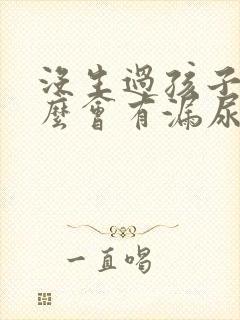 沒生過孩子
麼會有漏尿
一直唱